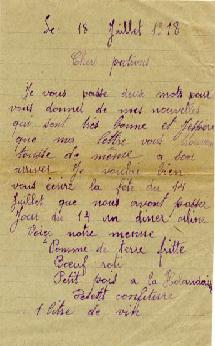 Le 18 Juillet 1918
Cher patrons
Je vous passe deux mots pour
vous donnet de mes nouvelles
qui sont très bonne et J'espère
que ma lettre vous trouve
tousse de même a son
arriver Je voudré bien
vous écrire la fête du 14
Juillet que nous avont passer
Jour du 14 un diner
Voici notre menue
Comme de terre fritte
Bœuf roti
Petit pois a la Holandaise
confiterre
1 litre de vin